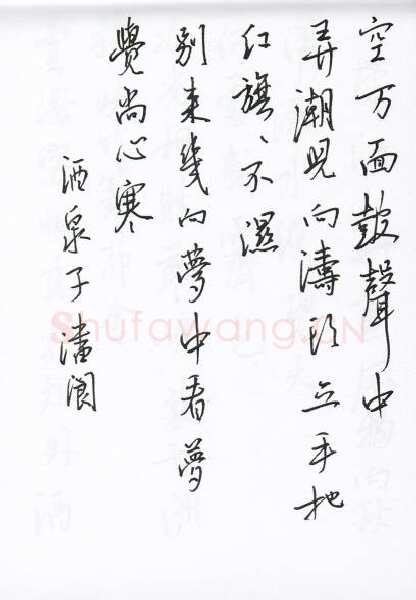 空万面鼓聲中
弄潮児向濤頭立手把
紅旗、不濕
別来幾向夢中看夢
覺尚心寒
酒泉子潘阆
Shufawang.CN